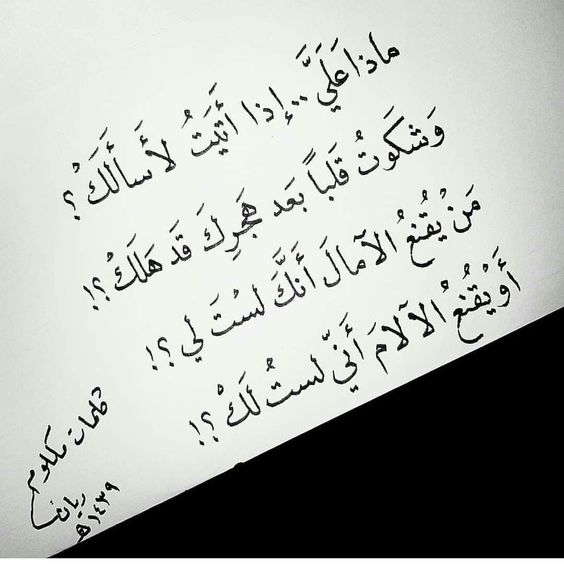 ماذا عَلَيَّ .. إذا أَتَيْتُ لأَسأَلَكْ ؟
وَشكَوتُ قلباً بَعد هَجرِكَ قَد هَلَكْ ؟!
مَنْ يُقنعُ الآمالَ أَنَّكَ لسْتَ لي ؟!
أَو يُقْنعُ الآلامَ أَنّي لستُ لَكْ ؟!
كلمات مكلوم
ريان
١٤٣٩هـ